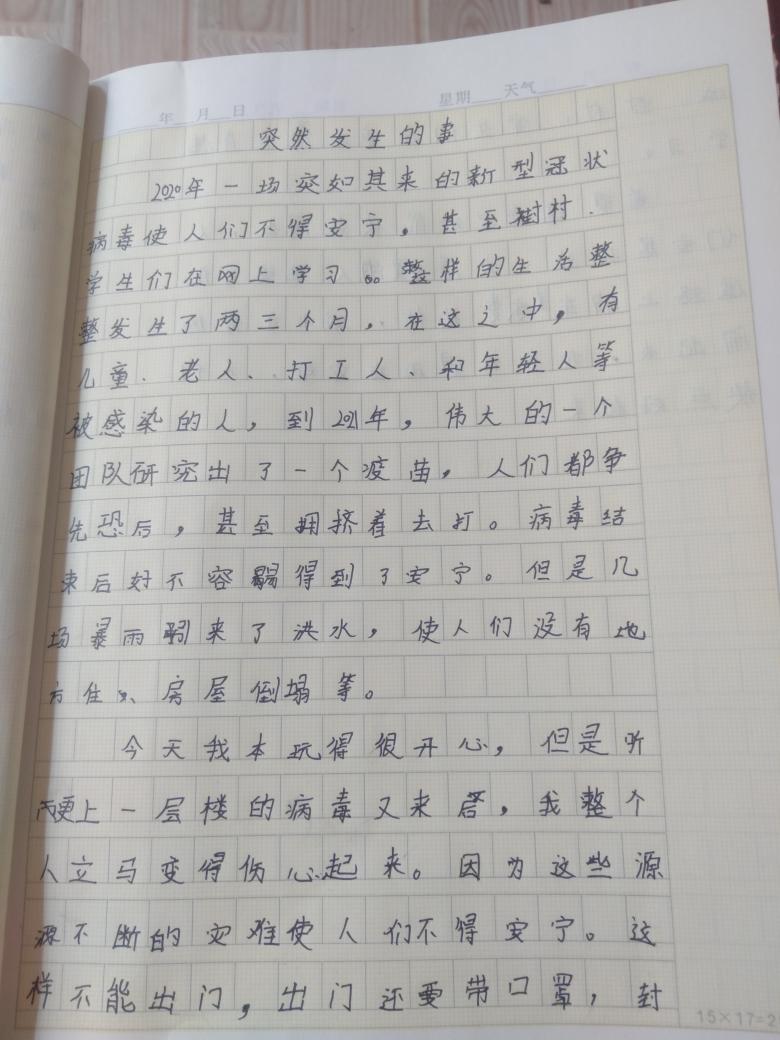 年 月 日 星期 天气
突然发生的事
2020年一场突如其来的新型冠状
病毒使人们不得安宁。甚至封村.
学生们在网上学习。这样的生活整
整发生了两三个月，在这之中，有
儿童、老人、打工人、和年轻人等
被感染的人，到2021年，伟大的一个
团队研究出了一个疫苗，人们都争
先恐后，甚至拥挤着去打。病毒结
束后好不容易得到了安宁。但是几
场暴雨引来了洪水，使人们没有地
方住、房屋倒塌等。
今天我本玩得很开心，但是听
更上一层楼的病毒又来，我整个
人立马变得伤心起来。因为这些源
源不断的灾难使人们不得安宁。这
样不能出门，出门还要带口罩，封
15×17=2